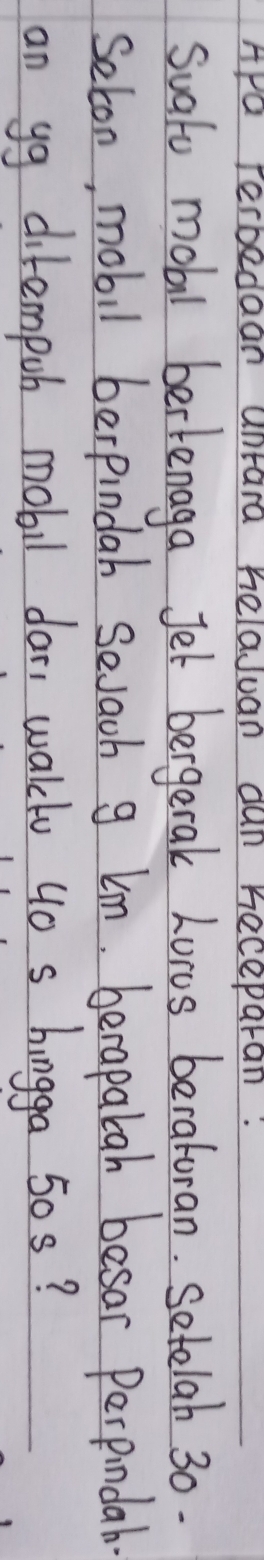 Apa Perbedaan antara kelajuan dan kecepatan?
Suatu mobil bertenaga Jet bergerak Lurus beraturan. Setelah 30-
Sekon, mobil berpindah Sejauh 9 km. berapakah besar Perpindah-
an yg ditempuh mobil dari waktu 40 s hingga 50 s?